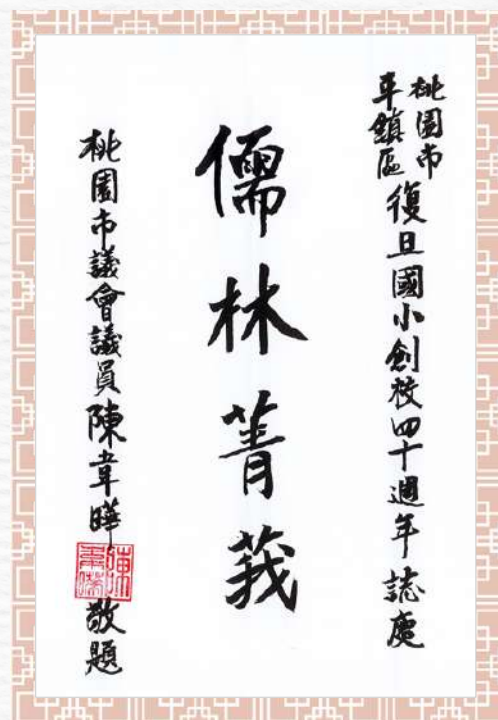 桃園市
平鎮區
復旦國小創校四十週年誌慶
儒林菁莪
桃園市議會議員陳韋曄敬題